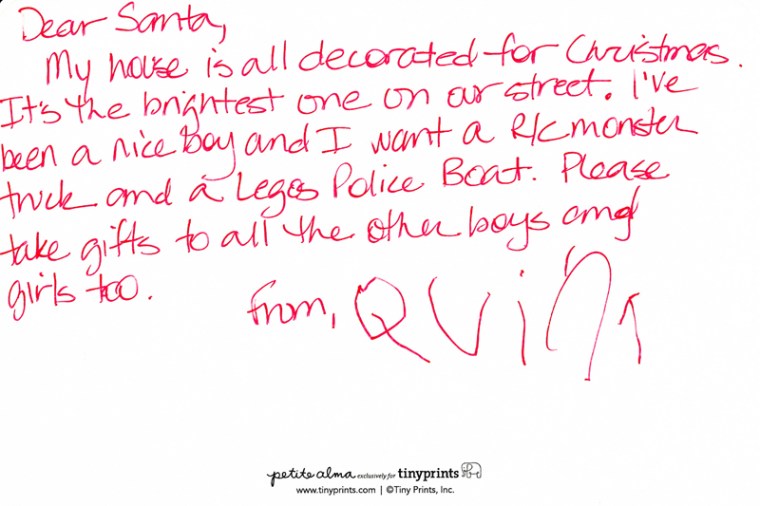 Dear Santa,
My house is all decorated for Christmas.
It's the brightest one on our street. I've
been a nice boy and I want a R/C monster
truck and a Legos Police Boat. Please
take gifts to all the other boys and
girls too.
From, QViNn
petite alma exclusively for tinyprints
www.tinyprints.com | ©Tiny Prints, Inc.